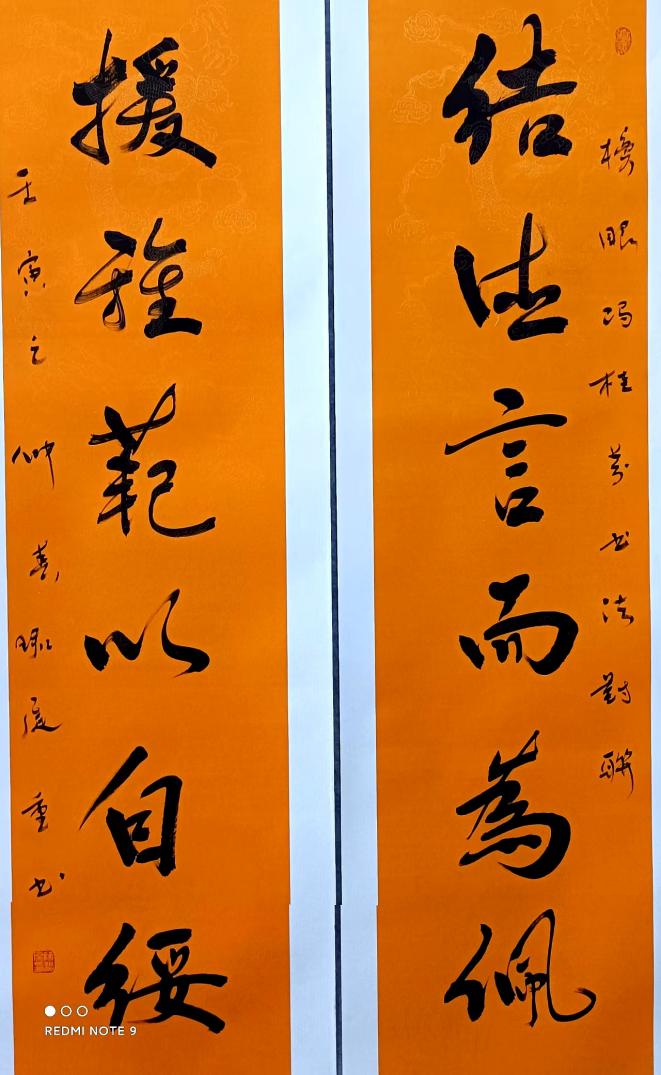 榜眼冯桂芬书法對聯
结德言而為佩
援雅範以自綏
壬寅之仲春 重书
REDMI NOTE 9